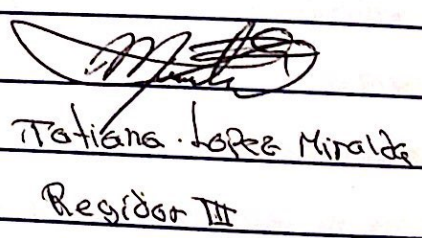 Tatiana. Lopez Miralda
Regidor III